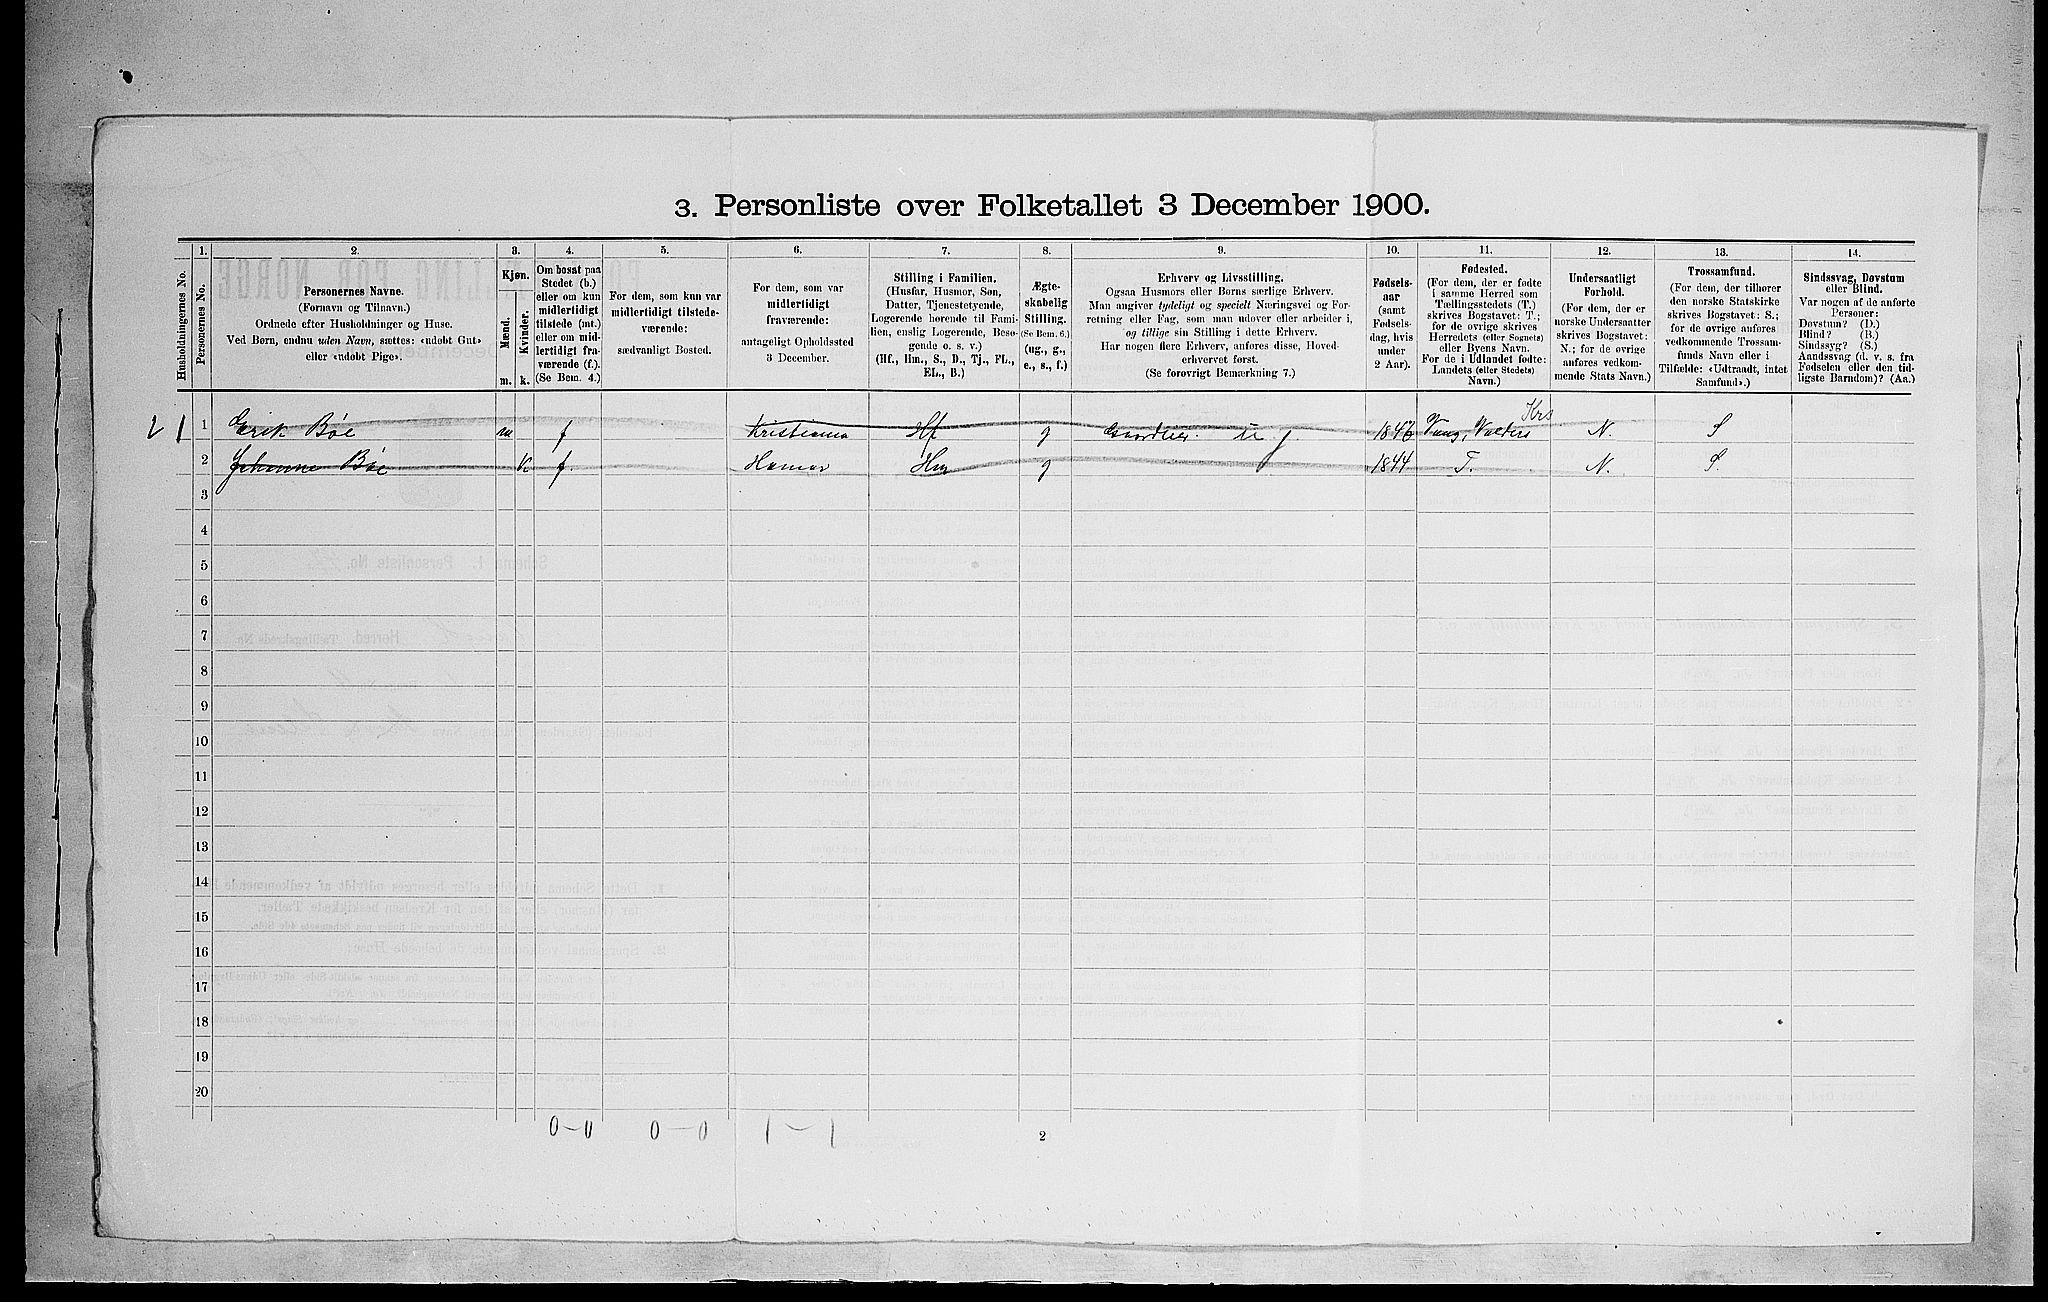 3. Personliste over Folketallet 3 December 1900.
Husholdningernes No.
1.
Personernes No.
2.
Personernes Navne.
(Fornavn og Tilnavn.)
Ordnede efter Husholdninger og Huse.
Ved Børn, endnu uden Navn, sættes: «udøbt Gut»
eller «udøbt Pige».
3.
Kjøn.
Mænd.
Kvinder.
m. k.
4.
Om bosat paa
Stedet (b.)
eller om kun
midlertidigt
tilstede (mt.)
eller om mid-
lertidigt fra-
værende (f.).
(Se Bem. 4.)
5.
For dem, som kun var
midlertidigt tilstede-
værende:
sædvanligt Bosted.
6.
For dem, som var
midlertidigt
fraværende:
antageligt Opholdssted
3 December.
7.
Stilling i Familien.
(Husfar, Husmor, Søn,
Datter, Tjenestetyende,
Logerende hørende til Fami-
lien, enslig Logerende, Besø-
gende o. s. v.)
(Hf., Hm., S., D., Tj., FL.,
EL., B.)
8.
Ægte-
skabelig
Stilling.
(Se Bem. 6.)
(ug., g.,
e., s., f.)
9.
Erhverv og Livsstilling.
Ogsaa Husmors eller Børns særlige Erhverv.
Man angiver tydeligt og specielt Næringsvei og For-
retning eller Fag, som man udøver eller arbeider i,
og tillige sin Stilling i dette Erhverv.
Har nogen flere Erhverv, anføres disse, Hoved-
erhvervet først.
(Se forøvrigt Bemærkning 7.)
10.
Fødsels-
aar
(samt
Fødsels-
dag, hvis
under
2 Aar).
11.
Fødested.
(For dem, der er fødte
i samme Herred som
Tællingsstedets (T.)
skrives Bogstavet: T.;
for de øvrige skrives
Herredets (eller Sognets)
eller Byens Navn.
For de i Udlandet fødte:
Landets (eller Stedets)
Navn.)
12.
Undersaatligt
Forhold.
(For dem, der er
norske Undersaatter
skrives Bogstavet:
N.; for de øvrige
anføres vedkom-
mende Stats Navn.)
13.
Trossamfund.
(For dem, der tilhører
den norske Statskirke
skrives Bogstavet: S.;
for de øvrige anføres
vedkommende Trossam-
funds Navn eller i
Tilfælde: «Udtraadt, intet
Samfund».)
14.
Sindssvag, Døvstum
eller Blind.
Var nogen af de anførte
Personer:
Døvstum? (D.)
Blind? (B.)
Sindssyg? (S.)
Aandssvag (d. v. s. fra
Fødselen eller den tid-
ligste Barndom)? (Aa.)
21 1 Erik Bøe m f Kristiania Hf g Gaardeier. 1846 Vang, Valders Krs N. S
2 Johanne Bøe k f Hamar Hm g 1844 T. N. S.
3
4
5
6
7
8
9
10
11
12
13
14
15
16
17
18
19
20
0–0 0–0 1–1
2